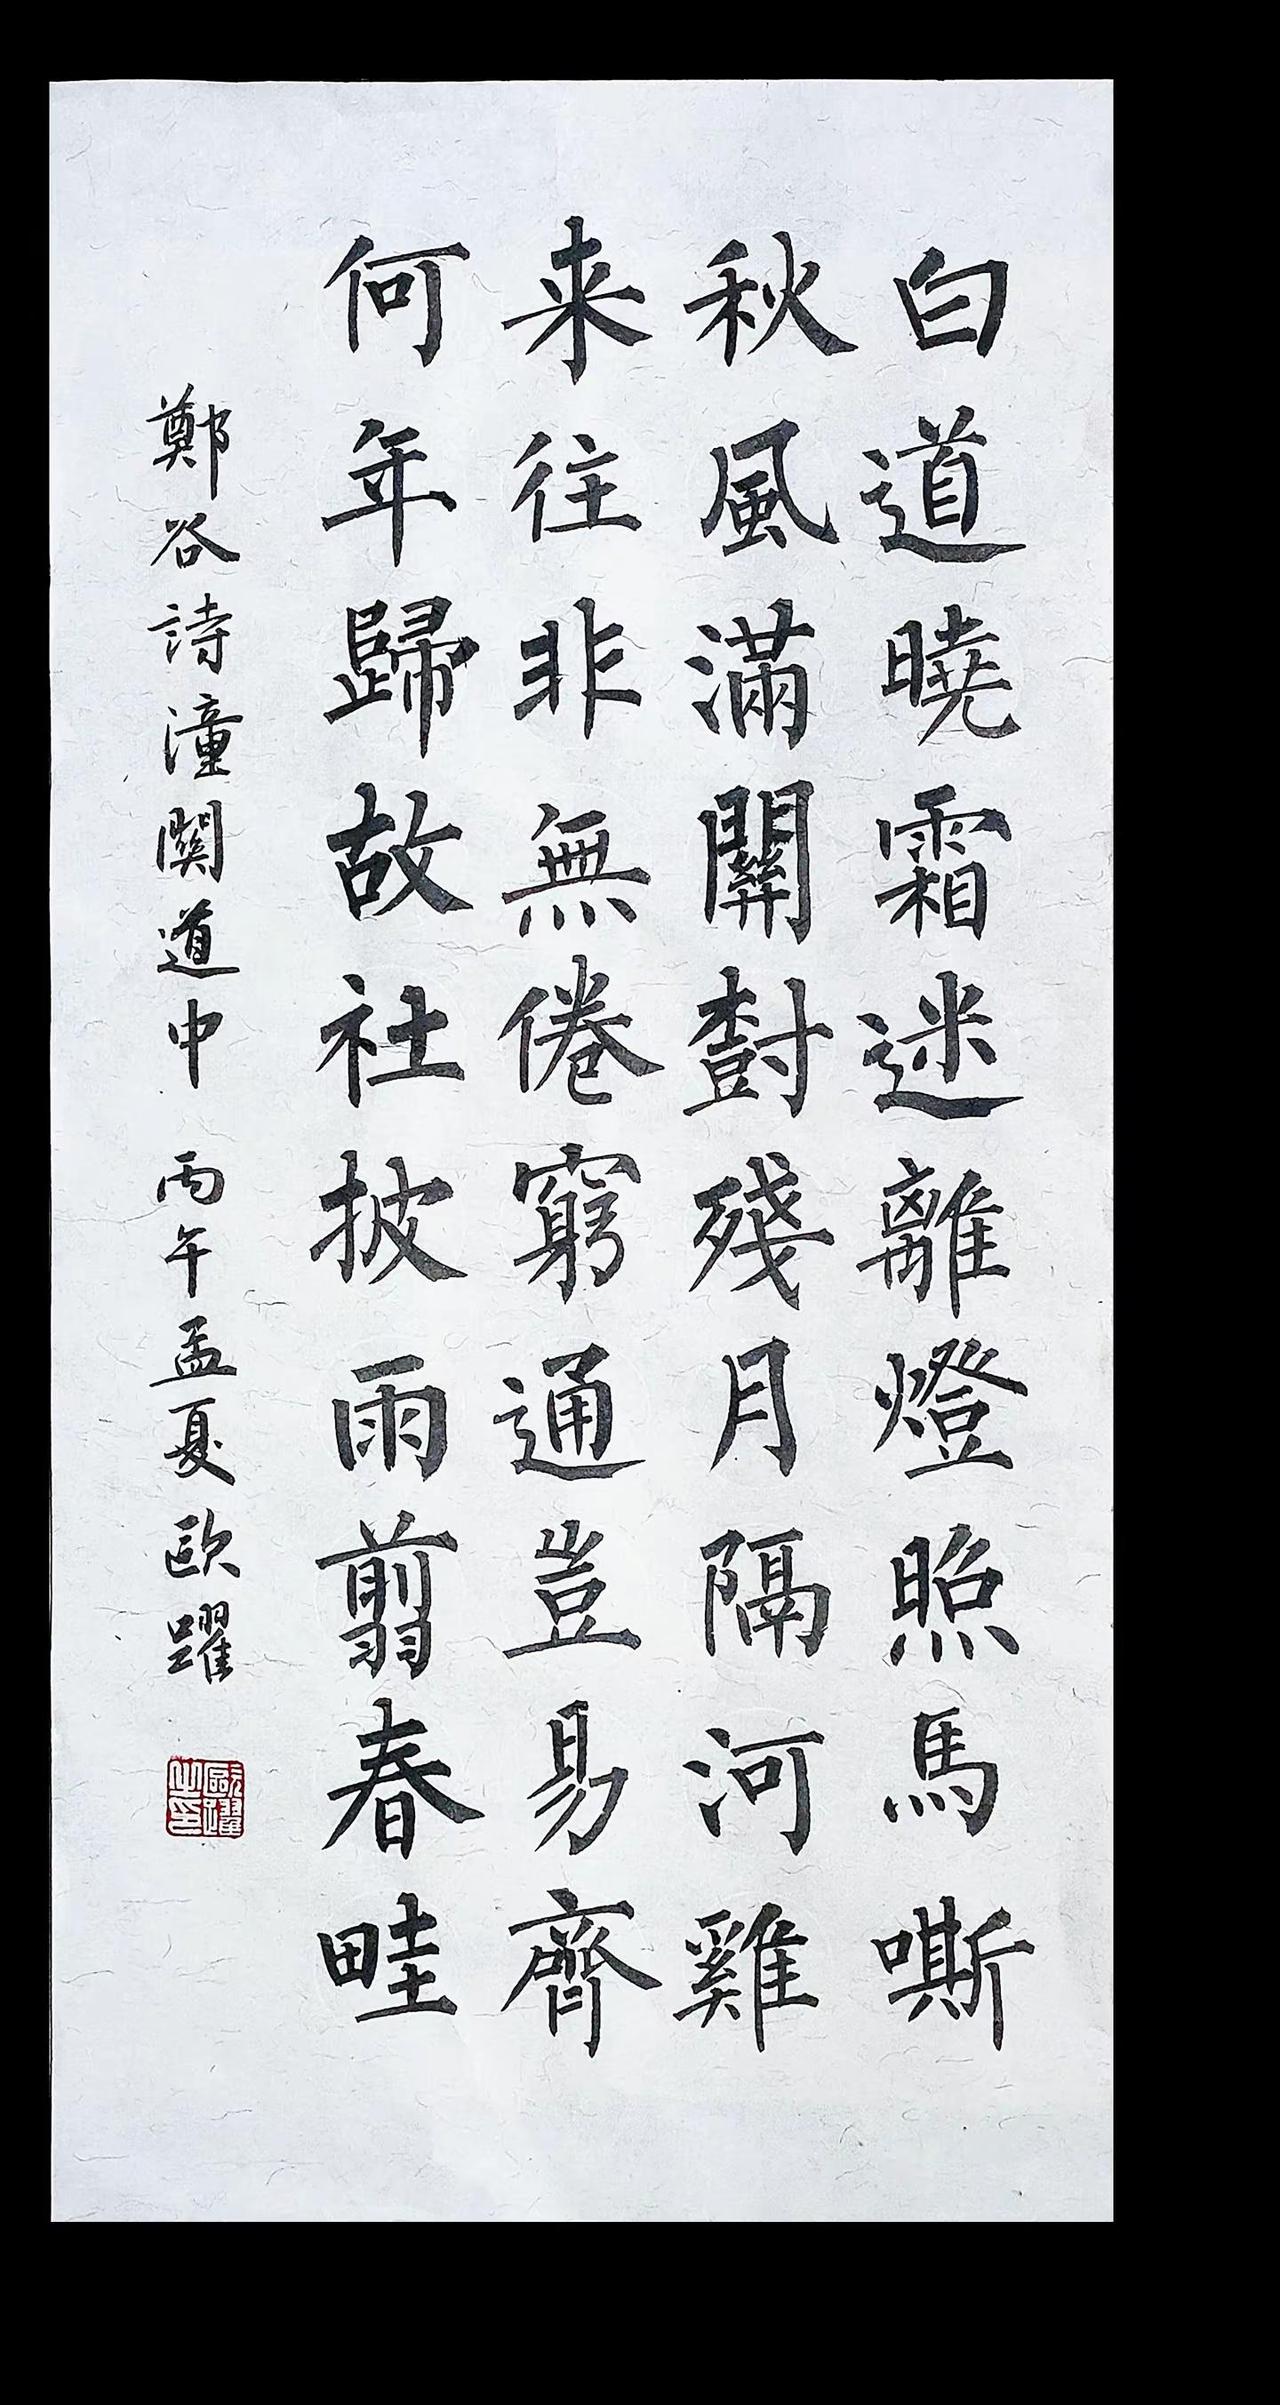 白道曉霜迷離燈照馬嘶
秋風滿關樹殘月隔河雞
来往非無倦窮通豈易齊
何年歸故社披雨翦春畦
鄭谷詩潼關道中 丙午孟夏歐躍
歐躍之印